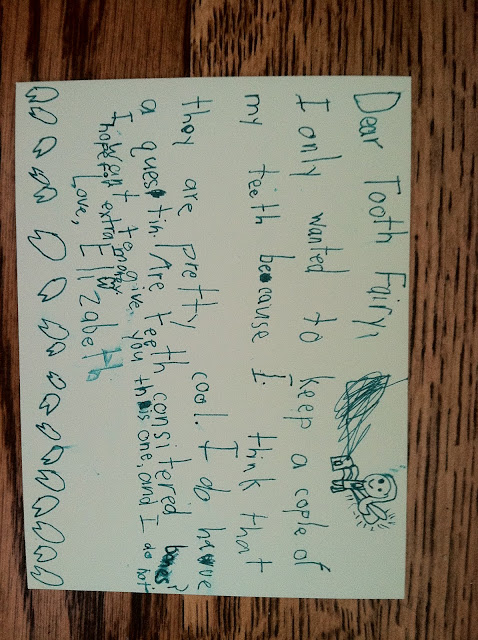 Dear Tooth Fairy,
I only wanted to keep a cople of
my teeth because I. think that
they are pretty cool. I do have
a questin. Are teeth consitered bones?
I give you this one, and I do not
extra
Love,
Elizabeth